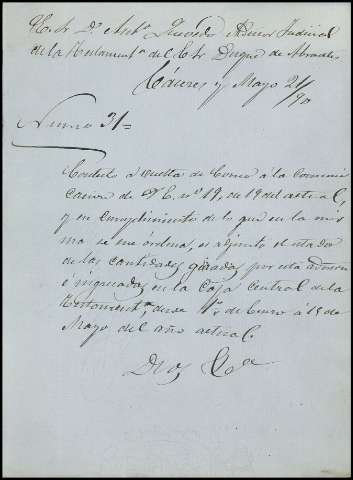 Excmo. Sr. Dn. Antº Quevedo Admor Judicial
de la Testamentª del Exmo. Duque de Abrantes
Cáceres y Mayo 21/90
Numo 31=
Contesto a vuelta de Correo á la comuni
cacion de V.E. nº 19, de 19 del actual,
y en cumplimiento de lo que en la mis
ma se me órdena, es adjunto el estado
de las cantidades giradas por esta admon
é ingresadas en la Caja Central de la
Testamentª, desde 1º de Enero á 15 de
Mayo del año actual.
Dios &ª